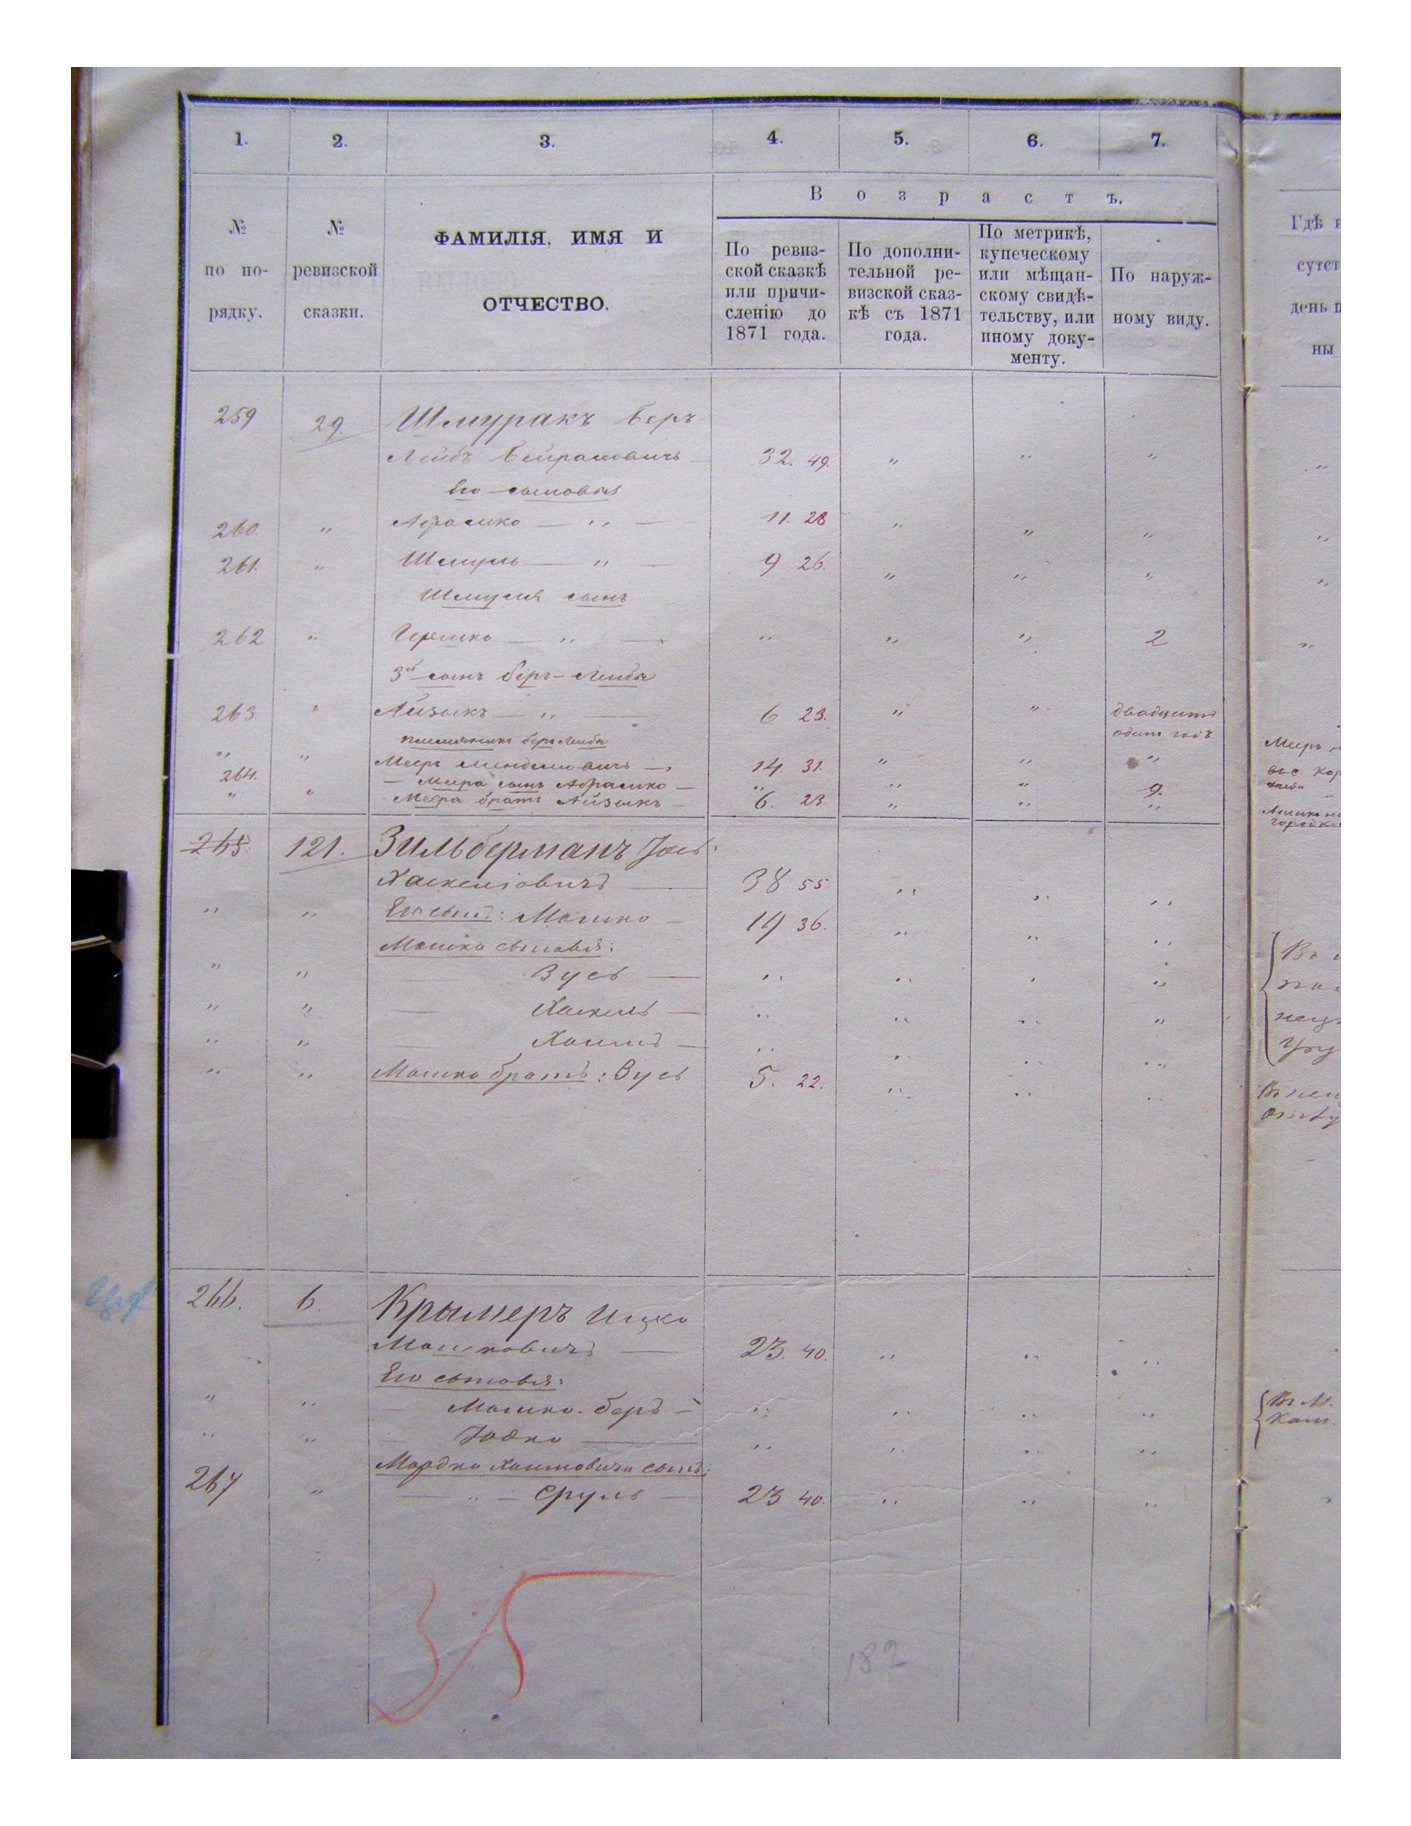 1. 2. 3. 4. 5. 6. 7.
Возрастъ.
№ по порядку.
№ ревизской сказки.
ФАМИЛІЯ, ИМЯ И
ОТЧЕСТВО.
По ревиз-
ской сказкѣ
или причи-
сленію до
1871 года.
По дополни-
тельной ре-
визской сказ-
кѣ съ 1871
года.
По метрикѣ,
купеческому
или мѣщан-
скому свидѣ-
тельству, или
иному доку-
менту.
По наруж-
ному виду.
Гдѣ
сутст
день п
ны
259 29. Шмуракъ Беръ
Лейбъ 32. 49. " " " "
Его сыновья
260. " Абрамко — " — 11. 28 " " " "
261. " Шмуль — " — 9 26. " " " "
Шмуля сынъ
262 " Гершко — " — " " " 2 "
3й сынъ Беръ-Лейбы
263 " Айзыкъ — " — 6 23. " " двадцать
одинъ годъ
племянникъ Беръ Лейбы
" " Мееръ Менделовичъ — 14 31. " " " Мееръ
264. — Меера сынъ Абрамко — " " " 9.
" " Меера братъ Айзыкъ — 6. 23 " " "
265. 121. Зильберманъ Іось
Хаскеліовичъ — 38 55 " " "
" " Его сынъ: Мошко — 19 36. " " "
Мошка сыновья:
" " — Зусь — " " " "
" " — Хаскель — " " " "
" " — Хаимъ — " " " "
" " Мошка братъ: Зусь 5. 22. " " "
266. 6. Крымеръ Ицко
Мошковичъ — 23. 40. " " "
Его сыновья:
" " — Мошко-Беръ — " " " "
" " — Іоско — " " " "
Мордко Хаимовича сынъ:
267 " — " — Сруль — 23 40. " " "
35
182